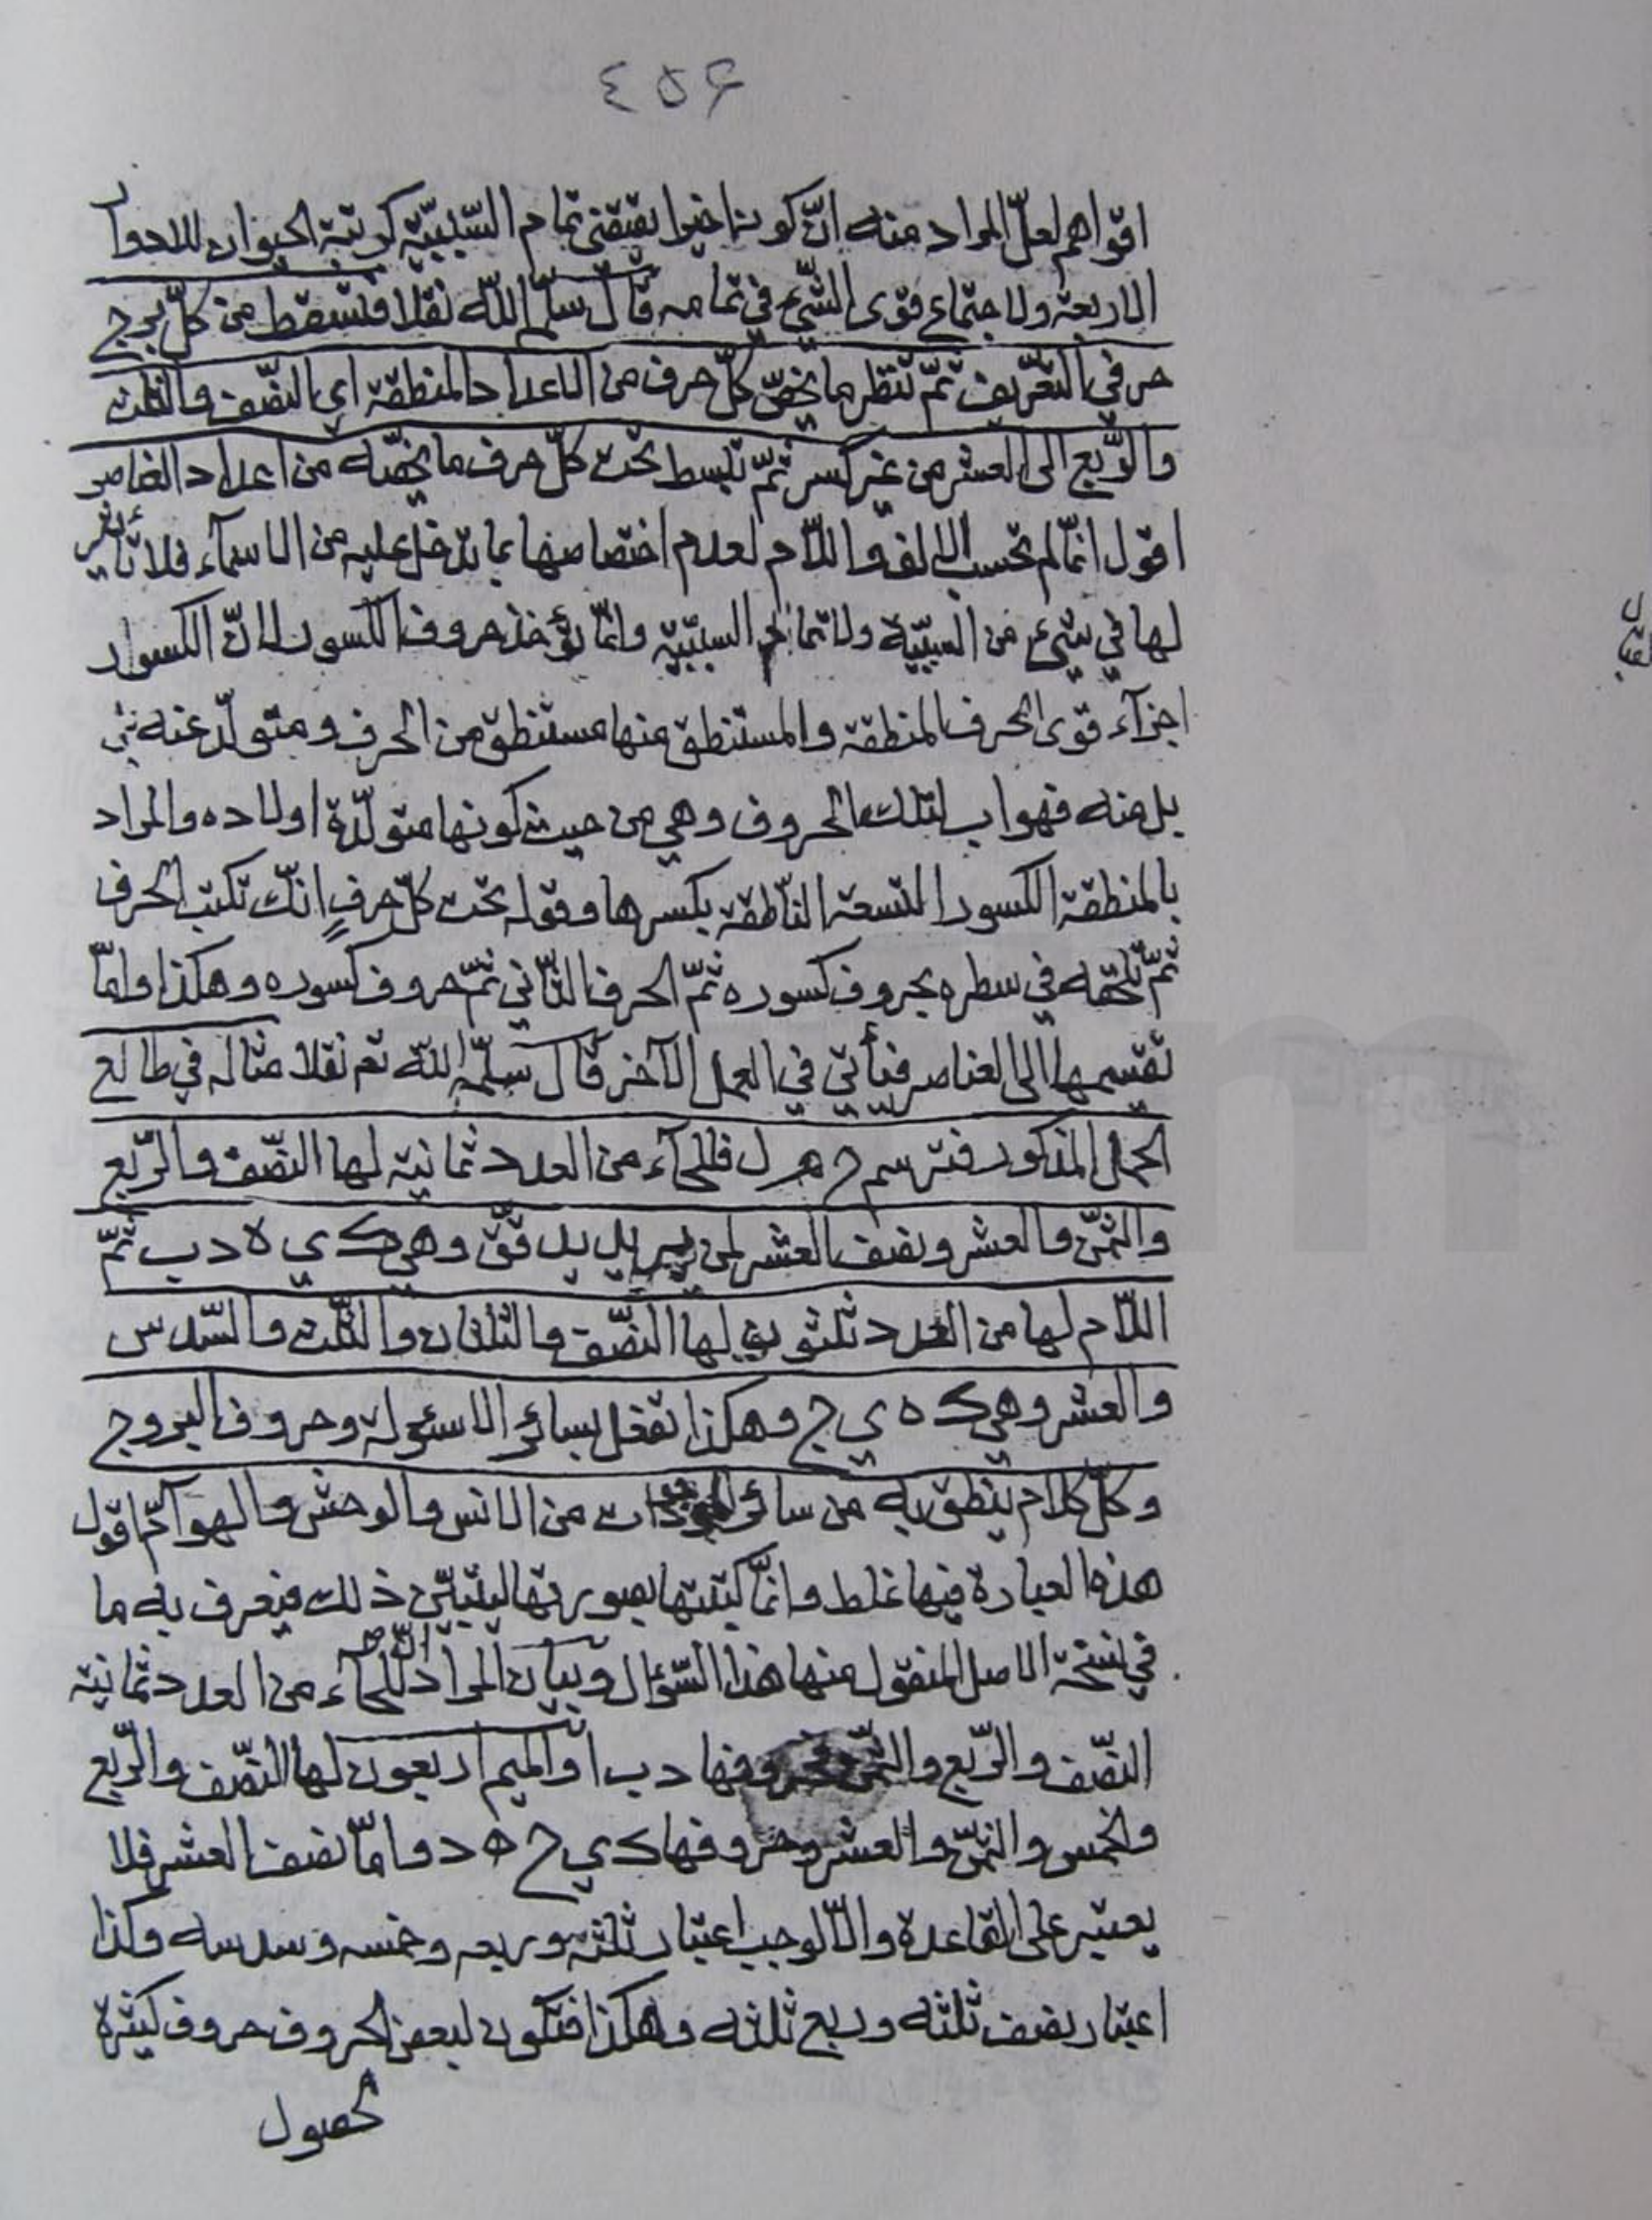 ٤٥۶
اقواهم لعلّ المراد منه انّ كونه اخيرا يقتضي تمام السّببيّة كرتبة الحيوان للادوار
الاربعة ولاجتماع قوى الشّيء في تمامه قال سلّمه اللّه نقلا فتسقط من كلّ برج
حرفي التّعريف ثمّ تنظر ما يخصّ كلّ حرف من الاعداد المنطقة اي النّصف والثلث
والرّبع الى العشر من غير كسر ثمّ تبسط تحت كلّ حرف ما يخصّه من اعداد العناصر
اقول انّما لم تحسب الالف واللّام لعدم اختصاصها بما تدخل عليه من الاسمآء فلا تأثير
لها في شيء من السببيّة ولا تمام السببيّة وانّما تؤخذ حروف الكسور لانّ الكسور
اجزآء قوى الحرف المنطقة والمستنطق منها مستنطق من الحرف ومتولّد عنه
بل منه فهو اب لتلك الحروف وهي من حيث كونها متولّدة اولاده والمراد
بالمنطقة الكسور التسعة النّاطقة بكسرها وقوله تحت كلّ حرفٍ انّك تكتب الحرف
ثمّ تلحقه في سطره بحروف كسوره ثمّ الحرف الثّاني ثمّ حروف كسوره وهكذا وامّا
تقسيمها الى العناصر فيأتي في العمل الآخر قال سلّمه اللّه تع نقلا مثاله في طالع
الحمل المذكور فترسم ح م ل فللحآء من العدد ثمانية لها النّصف والرّبع
والثّمن والعشر ونصف العشر وهي ك ي ه د ب ثمّ
اللّام لها من العدد ثلثون لها النّصف والثلثان والثّلث والسّدس
والعشر وهي ك ه ي ج وهكذا تفعل بسائر الاسئولة وحروف البروج
وكلّ كلام ينطق به من سائر الموجودات من الانس والوحش والهوآمّ اقول
هذه العبارة فيها غلط وانّما كتبتها بصورتها ليتبيّن ذلك فيعرف به ما
في نسخة الاصل المنقول منها هذا السّؤال وبيان المراد انّ للحآء من العدد ثمانية
النّصف والرّبع والثّمن وحروفها د ب ا والميم اربعون لها النّصف والرّبع
والخمس والثّمن والعشر وحروفها ك ي ح ه د وامّا نصف العشر فلا
يعتبر على القاعدة والّا لوجب اعتبار ثلثه وربعه وخمسه وسدسه وكذا
اعتبار نصف ثلثه وربع ثلثه وهكذا فتكون لبعض الحروف حروف كثيرة
لحصول